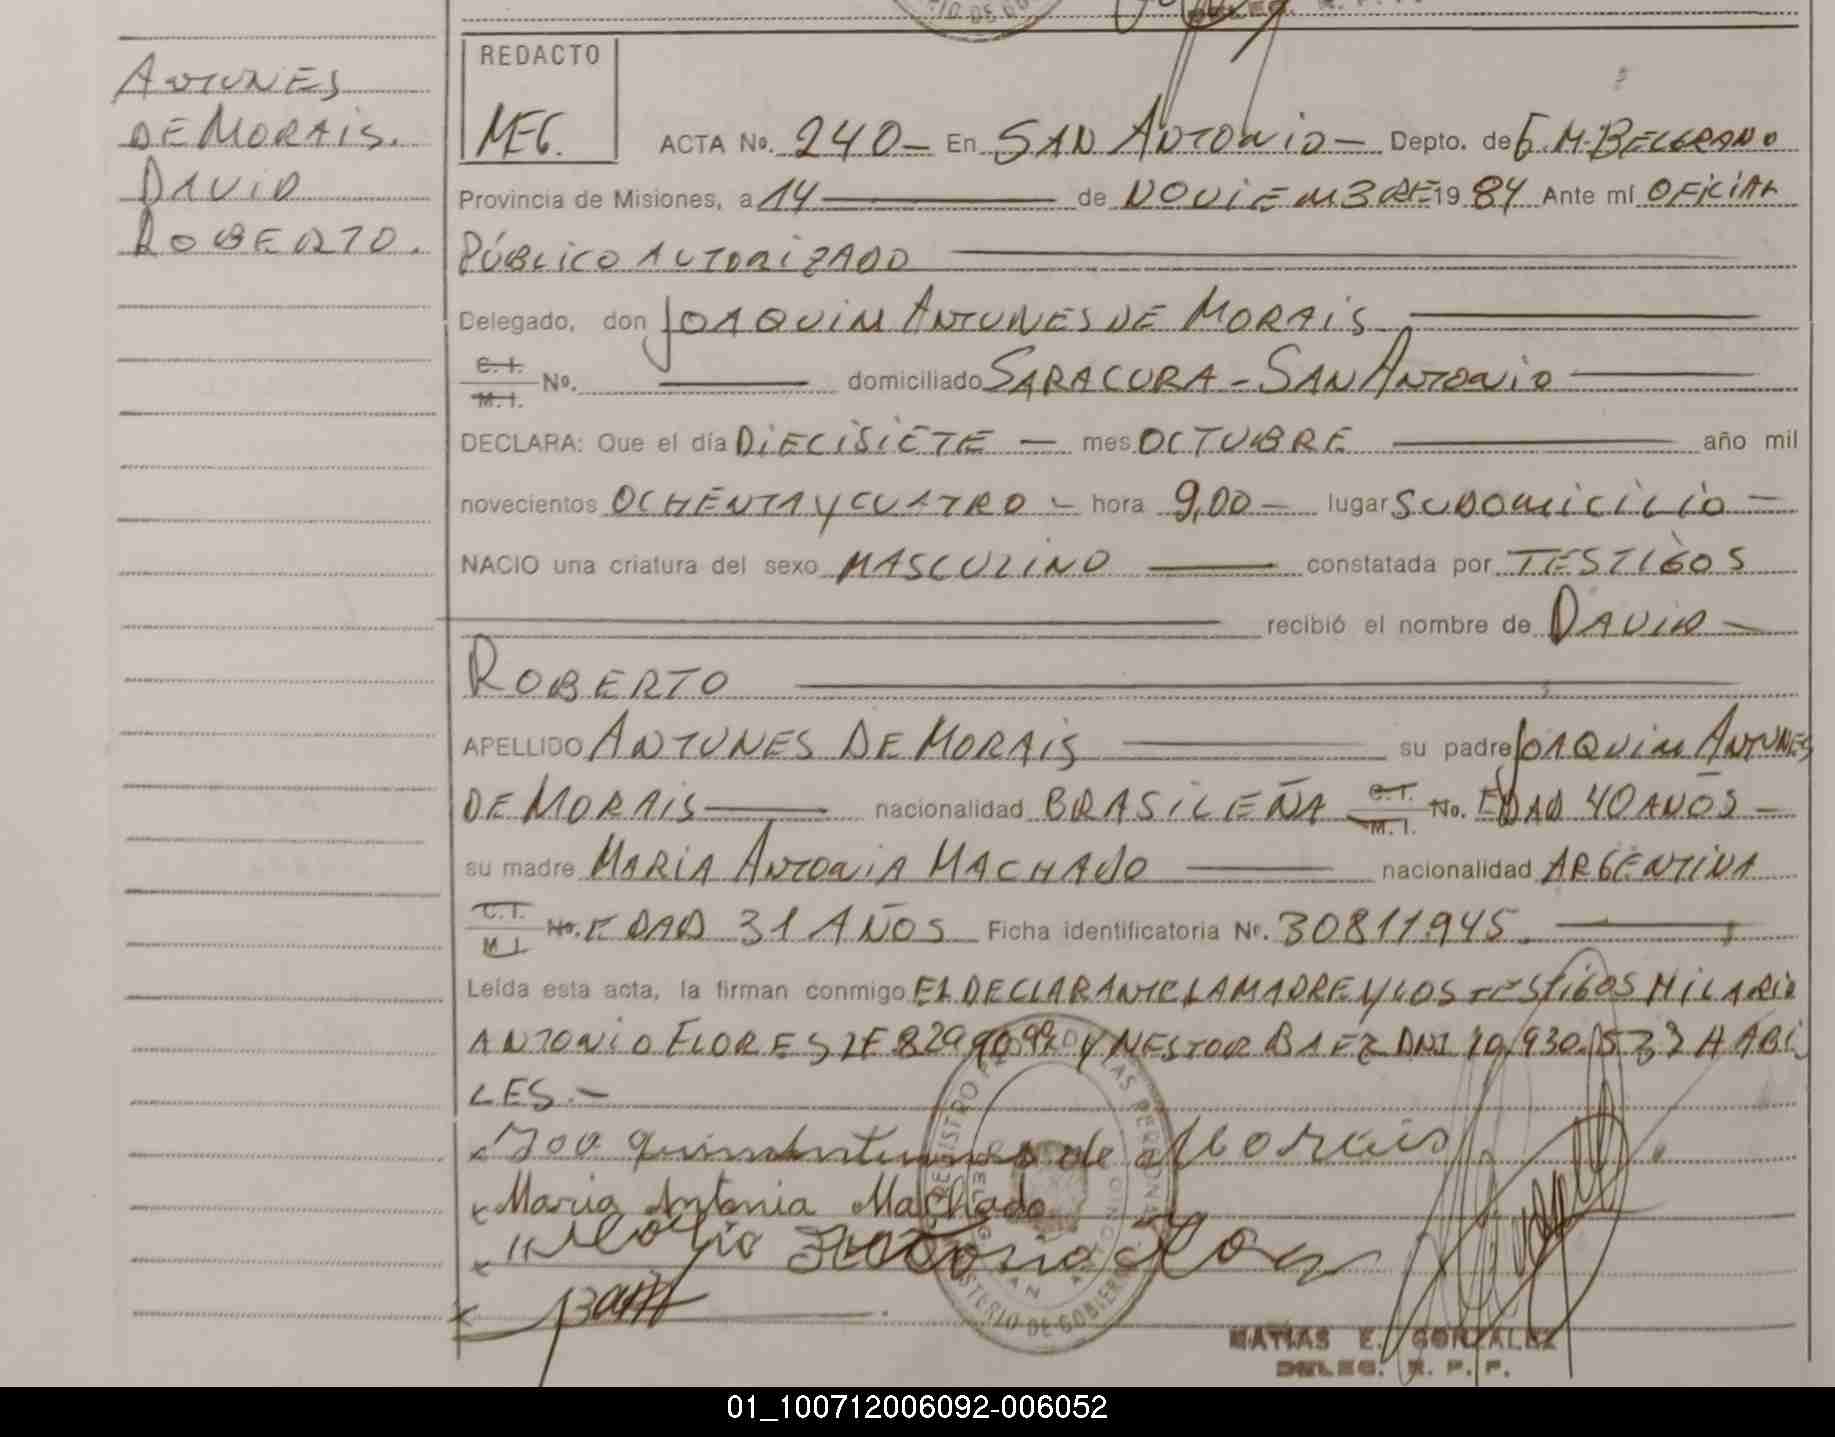 ANTUNES
DE MORAIS.
DAVID
ROBERTO.
REDACTO
MEG.
ACTA No. 240- En SAN ANTONIO- Depto. de G. M. BELGRANO
Provincia de Misiones, a 14 de NOVIEMBRE 1984 Ante mí OFICIAL
PÚBLICO AUTORIZADO
Delegado, don JOAQUIM ANTUNES DE MORAIS
C. I. M. I. No. domiciliado SARACURA - SAN ANTONIO
DECLARA: Que el día DIECISIETE - mes OCTUBRE año mil
novecientos OCHENTA Y CUATRO - hora 9,00- lugar SU DOMICILIO -
NACIO una criatura del sexo MASCULINO constatada por TESTIGOS
recibió el nombre de DAVID -
ROBERTO
APELLIDO ANTUNES DE MORAIS su padre JOAQUIM ANTUNES
DE MORAIS nacionalidad BRASILEÑA C. I. M. I. No. EDAD 40 AÑOS -
su madre MARIA ANTONIA MACHADO nacionalidad ARGENTINA
C. I. M. I. No. EDAD 31 AÑOS Ficha identificatoria No. 30811945.
Leída esta acta, la firman conmigo EL DECLARANTE LA MADRE Y LOS TESTIGOS HILARIO
ANTONIO FLORES LE Y NESTOR BAEZ DNI 10.930.533 HABI
LES.-
x Joaquim Antunes de Morais
x Maria Antonia Machado
x
x
MINISTERIO DE GOBIERNO
SAN ANTONIO
MATIAS E. GONZALEZ
DELEG. R. P. P.
01_100712006092-006052